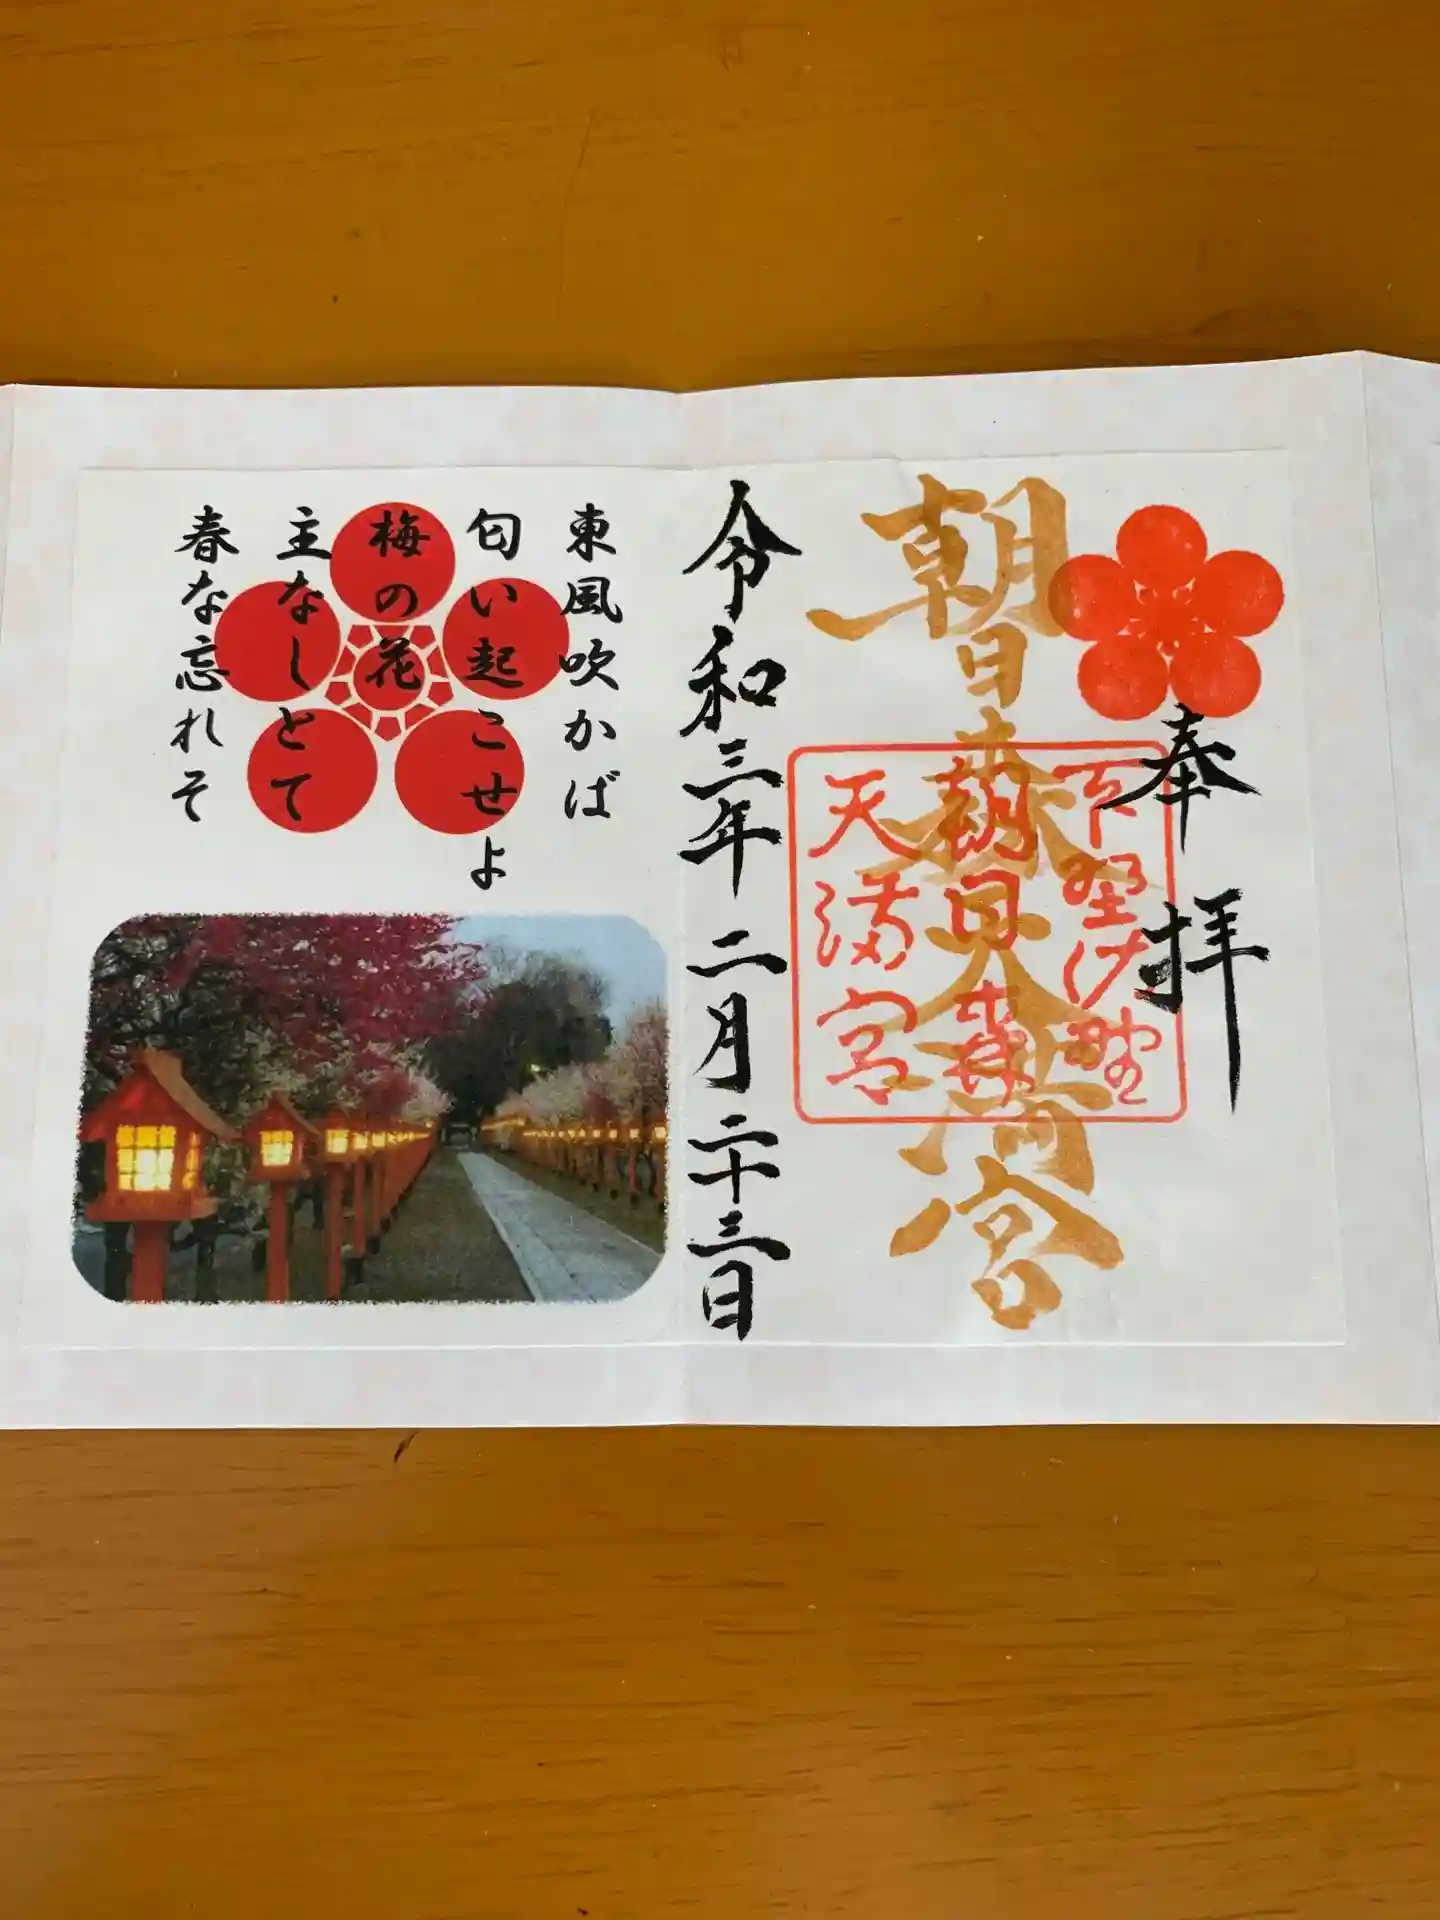 奉拝
朝日森天満宮
下野佐野
朝日森
天満宮
令和三年二月二十三日
東風吹かば
匂い起こせよ
梅の花
主なしとて
春な忘れそ